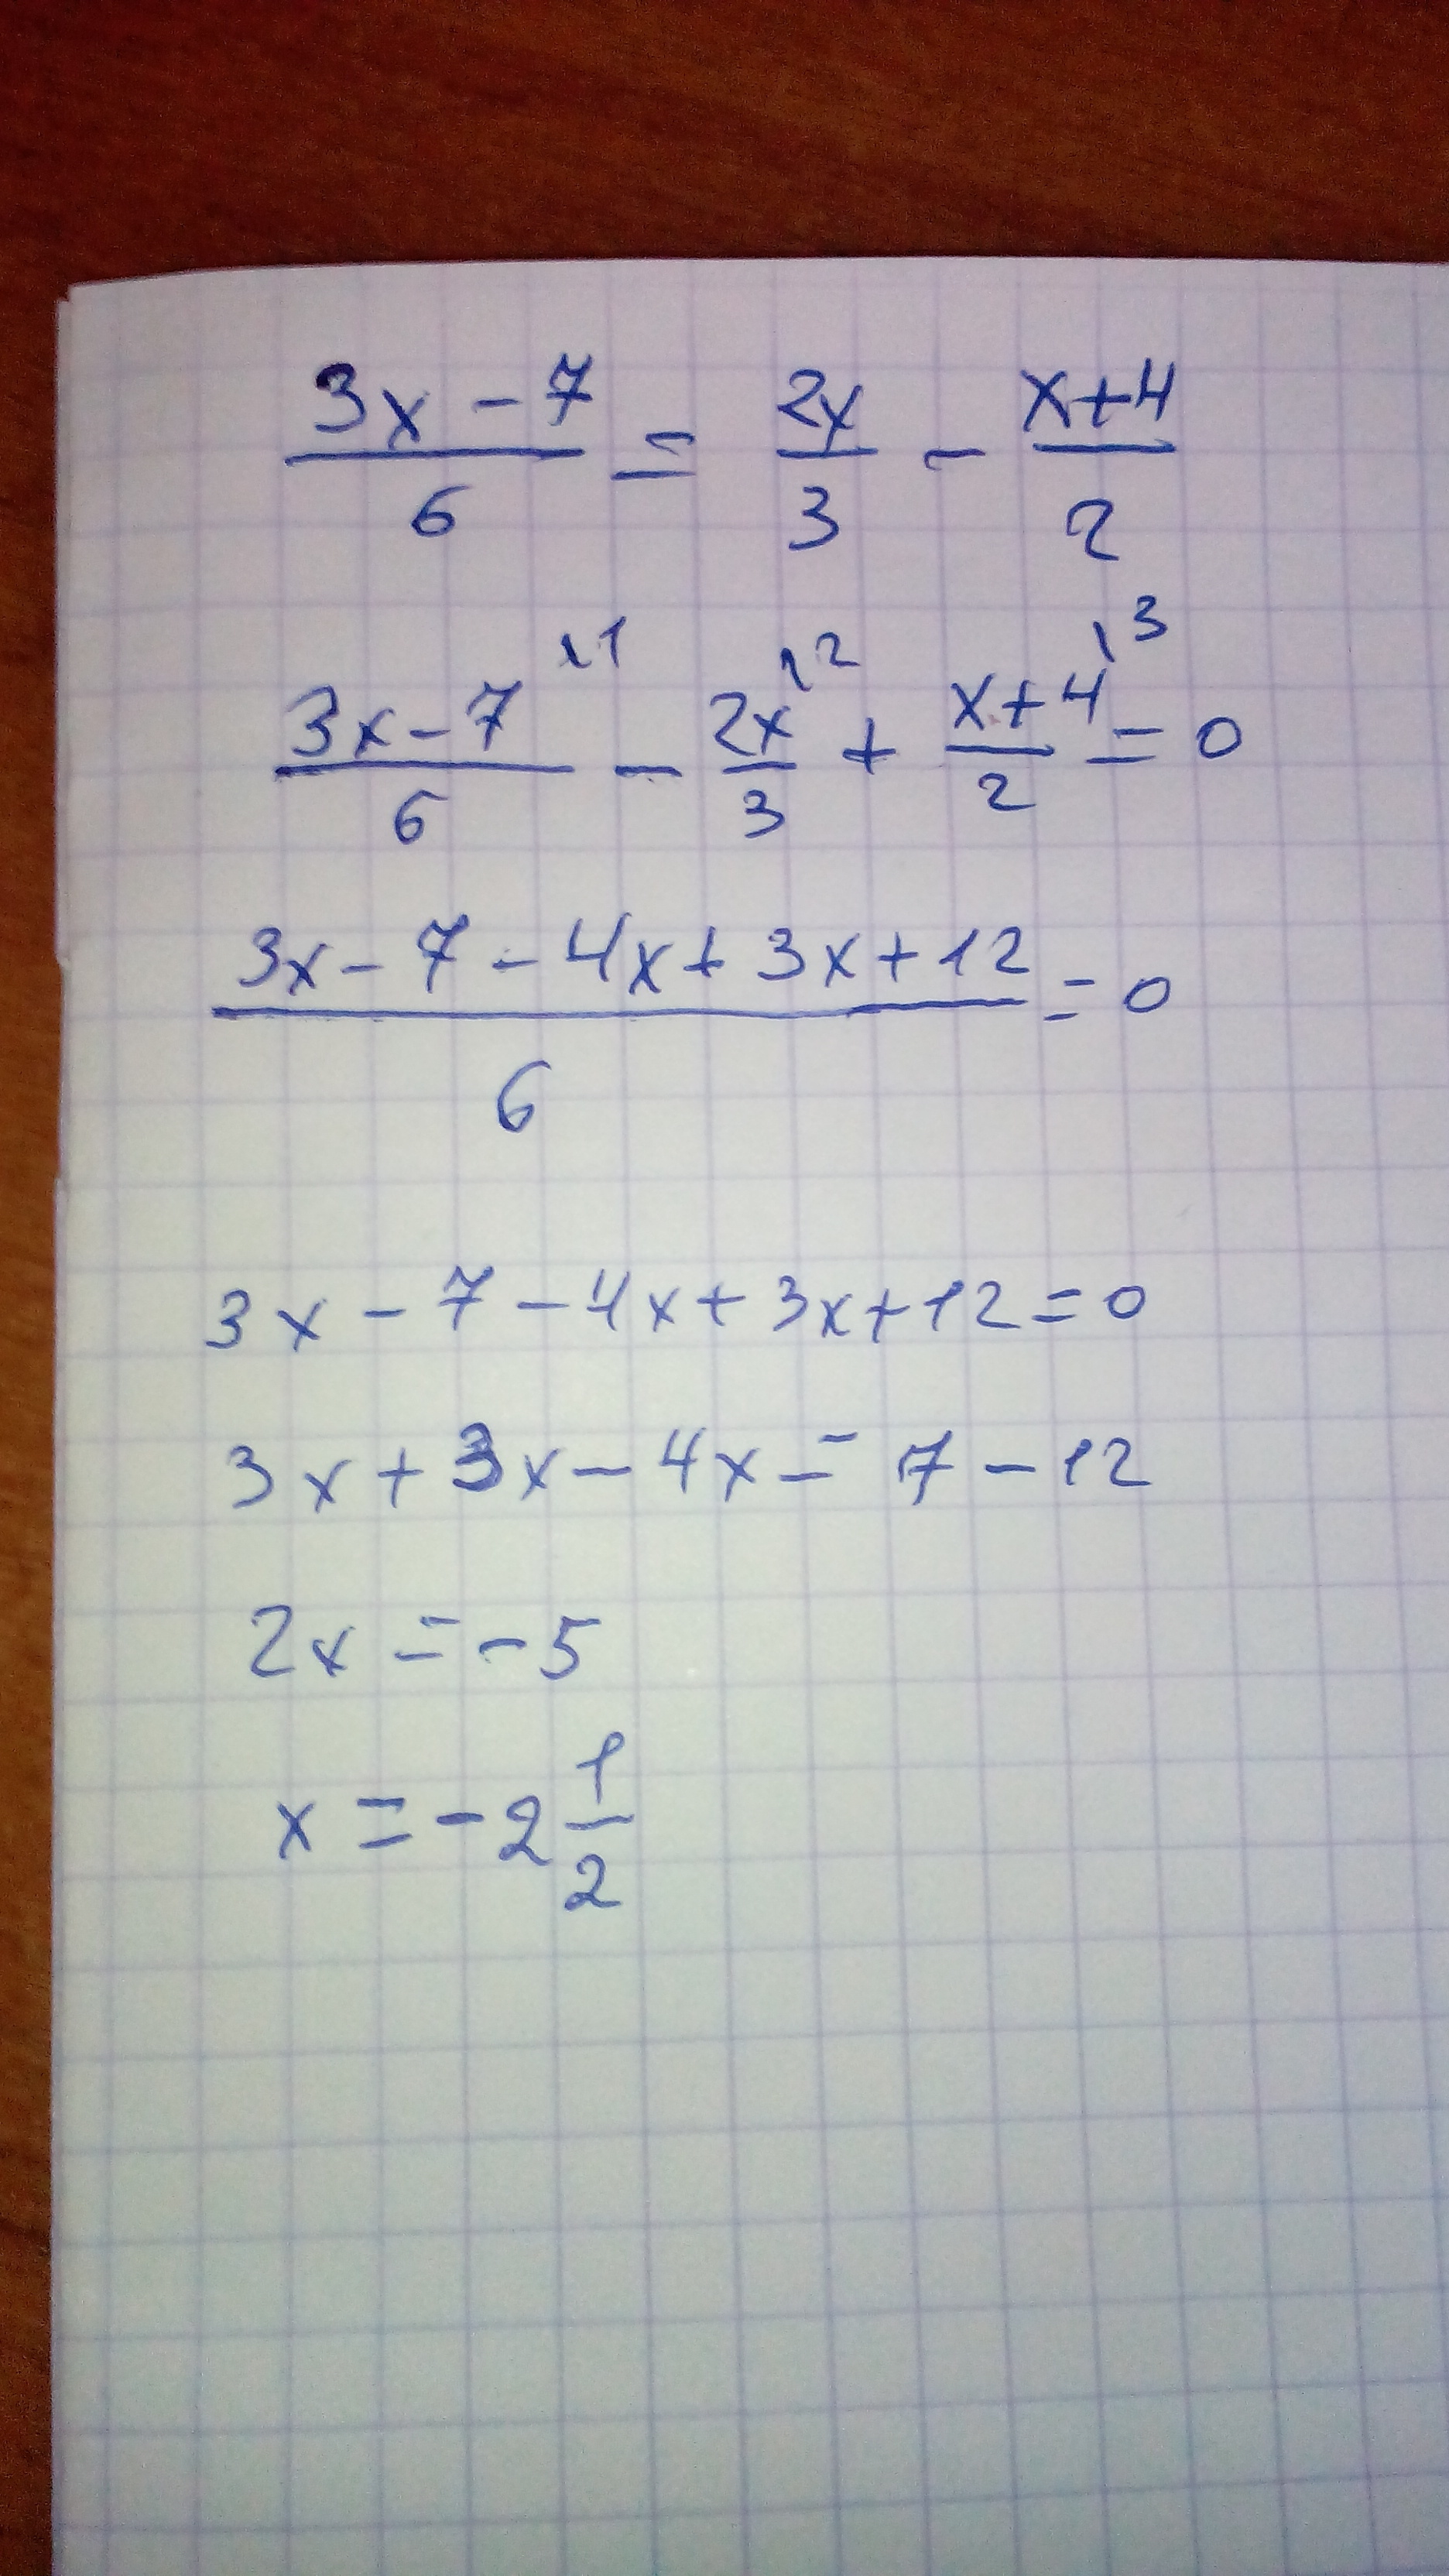 (3x - 7)/6 = 2x/3 - (x+4)/2
(3x - 7)/6 \1 - 2x/3 \2 + (x+4)/2 \3 = 0
(3x - 7 - 4x + 3x + 12)/6 = 0
3x - 7 - 4x + 3x + 12 = 0
3x + 3x - 4x = 7 - 12
2x = -5
x = -2 1/2